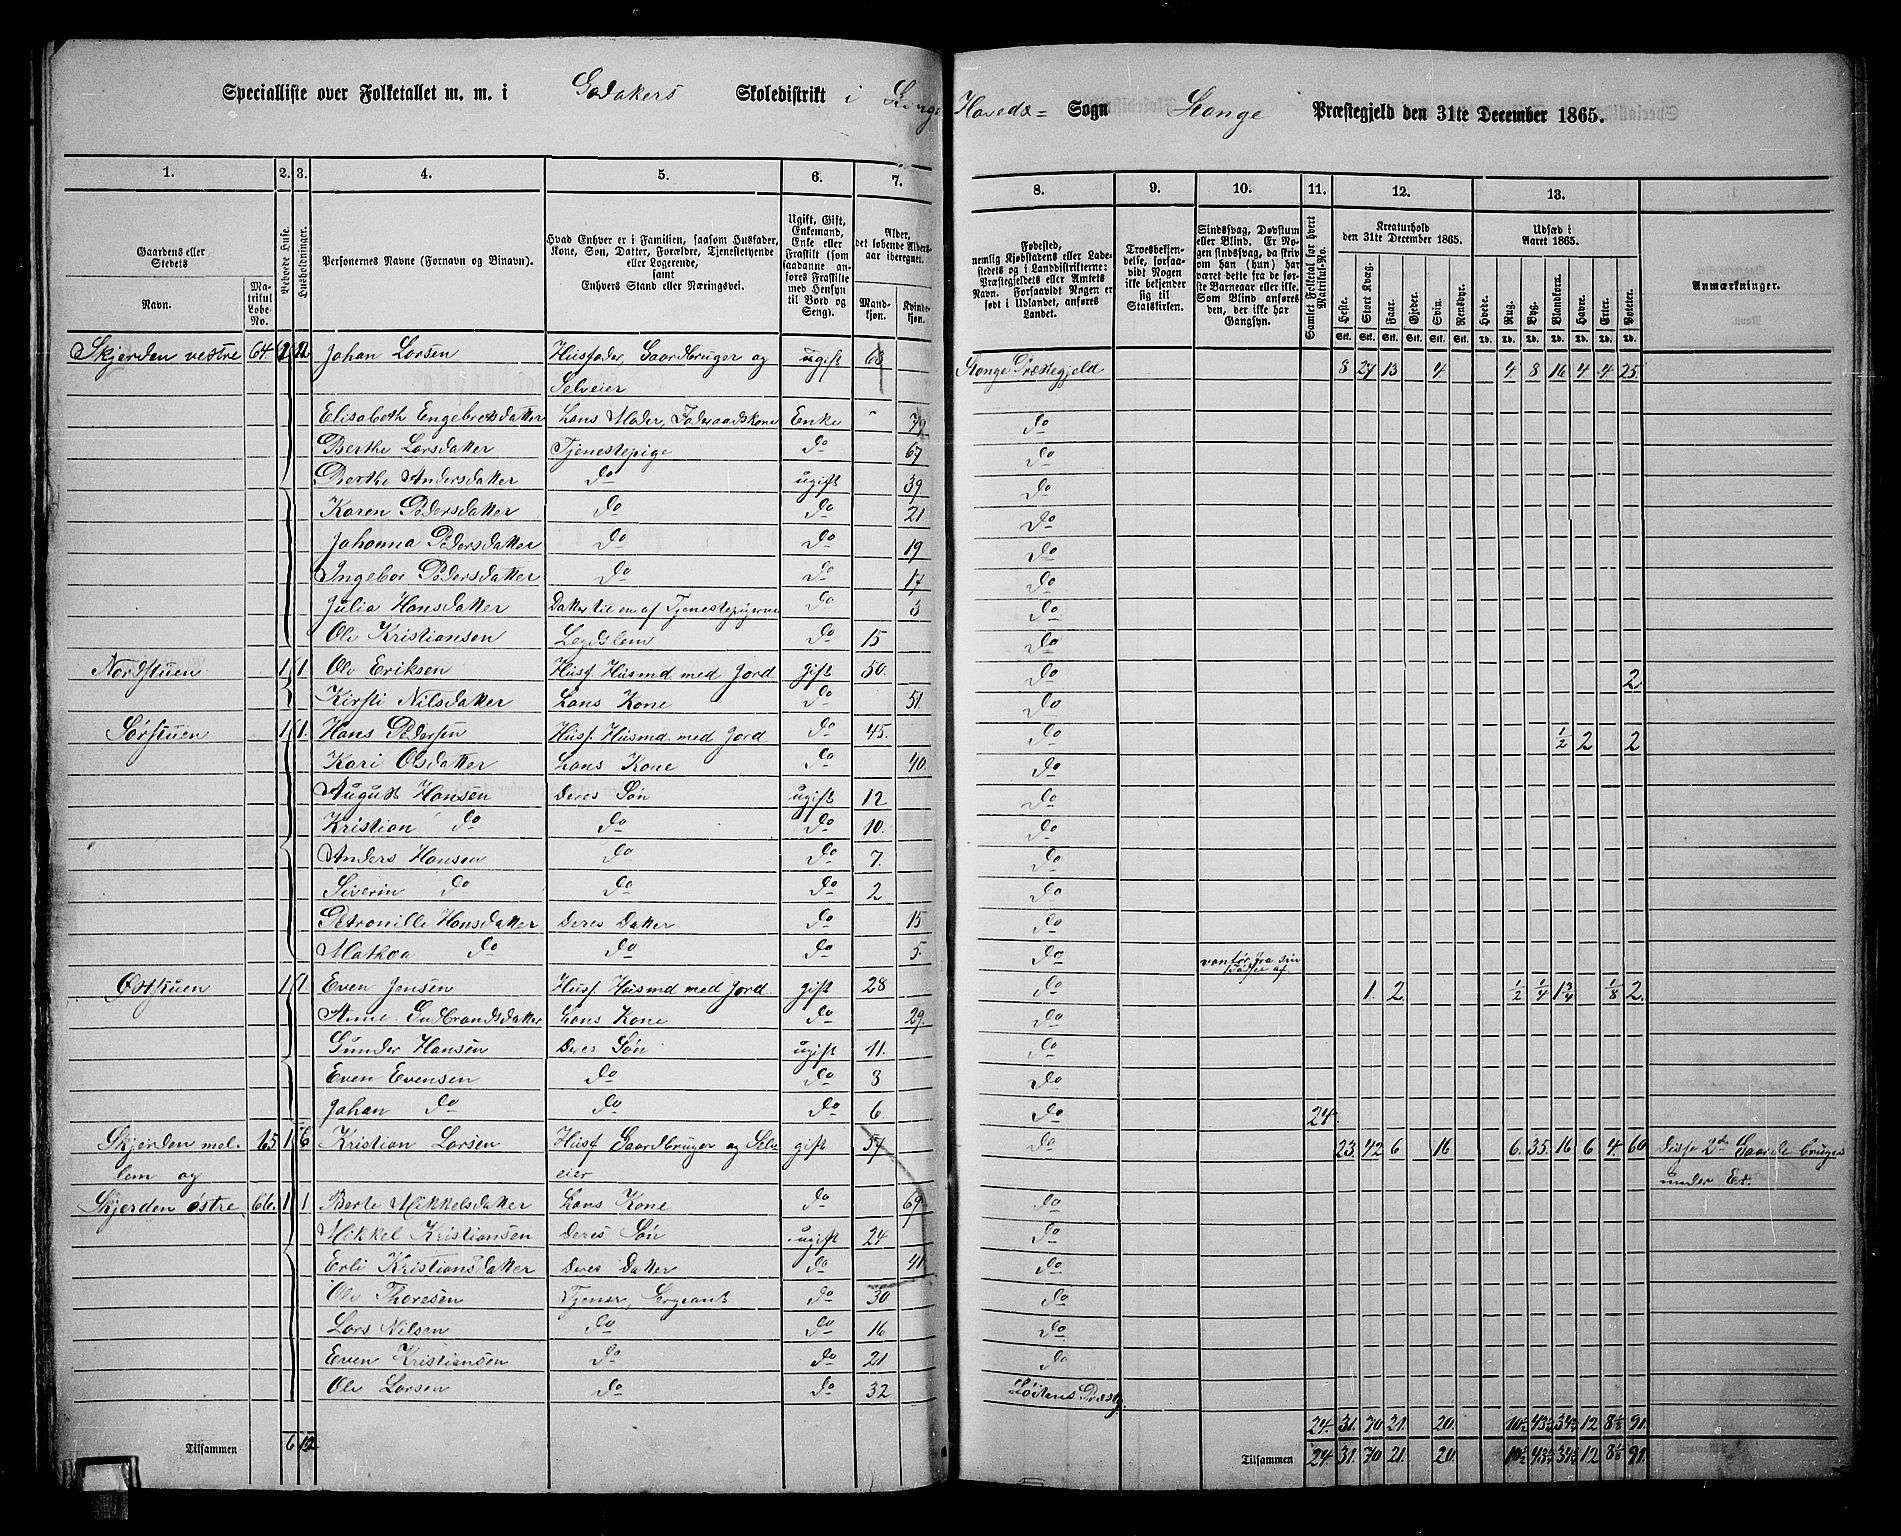 Specialliste over Folketallet m. m. i Godakers Skoledistrikt i Stange Hoveds= Sogn Stange Præstegjeld den 31te December 1865.
1. 2. 3. 4. 5. 6. 7. 8. 9. 10. 11. 12. 13.
Gaardens eller Stedets
Navn.
Matrikul Løbe-No.
Beboede Huse.
Husholdninger.
Personernes Navne (Fornavn og Binavn).
Hvad Enhver er i Familien, saasom Husfader, Kone, Søn, Datter, Forældre, Tjenestetyende eller Logerende,
samt
Enhvers Stand eller Næringsvei.
Ugift, Gift, Enkemand, Enke eller Fraskilt (som saadanne anføres Fraskilte med Hensyn til Bord og Seng).
Alder, det løbende Aldersaar iberegnet.
Mandkjøn.
Kvindekjøn.
Fødested,
nemlig Kjøbstadens eller Ladestedets og i Landdistrikterne: Præstegjeldets eller Amtets Navn. Forsaavidt Nogen er født i Udlandet, anføres Landet.
Troesbekjendelse, forsaavidt Nogen ikke bekjender sig til Statskirken.
Sindssvag, Døvstum eller Blind. Er Nogen sindssvag, da skrives om han (hun) har været dette fra de første Barneaar eller ikke. Som Blind anføres den, der ikke har Gangsyn.
Samlet Folketal for hvert Matrikul-No.
Kreaturhold den 31te December 1865.
Heste. Stort Kvæg. Faar. Gjeder. Svin. Rensdyr.
Udsæd i Aaret 1865.
Hvede. Rug. Byg. Blandkorn. Havre. Erter. Poteter.
Anmærkninger.
Skjerden vestre 64 2 2 Johan Larsen Husfader, Gaardbruger og ugift 63 Stange Præstegjeld 8 27 13 4 4 8 16 4 4 25
Selveier
Elisabeth Engebretsdatter Hans Moder, Føderaadskone Enke 79 do
Berthe Larsdatter Tjenestepige do 67 do
Berthe Andersdatter do ugift 39 do
Karen Pedersdatter do do 21 do
Johanna Pedersdatter do do 19 do
Ingebor Pedersdatter do do 17 do
Julia Hansdatter Datter til en af Tjenestepigerne do 3 do
Ole Kristiansen Legdslem do 15 do
Nordstuen 1 1 Ole Eriksen Husf. Husmd med Jord gift 50 do 2
Kirsti Nilsdatter Hans Kone do 51 do
Sørstuen 1 1 Hans Pedersen Husf. Husmd. med Jord do 45 do 1/2 2 2
Kari Olsdatter Hans Kone do 40 do
August Hansen Deres Søn ugift 12 do
Kristian do do do 10 do
Anders Hansen do do 7 do
Siverin do do do 2 do
Petronille Hansdatter Deres Datter do 15 do
Mathea do do do 5 do vanfør fra sin Fødsel af
Øststuen 1 1 Even Jensen Husf Husmd med Jord gift 28 do 1 2 1/2 1/4 1 3/4 1/8 2
Anne Gudbrandsdatter Hans Kone do 29 do
Gunder Hansen Deres Søn ugift 11 do
Even Evensen do do 3 do
Johan do do do 6 do 24
Skjerden mel- 65 1 6 Kristian Larsen Husf Gaardbruger og Selv- gift 57 do 23 42 6 16 6 35 16 6 4 60 Disse 2de Gaarde bruges
lem og eier under Et.
Skjerden østre 66 1 1 Berte Mikkelsdatter Hans Kone do 69 do
Mikkel Kristiansen Deres Søn ugift 24 do
Erli Kristiansdatter Deres Datter do 41 do
Ole Thoresen Tjener, Sergeant do 30 do
Lars Nilsen do do 16 do
Even Kristiansen do do 21 do
Ole Larsen do do 32 Løitens Præstg
24 31 70 21 20 10 1/2 43 1/4 34 1/4 12 8 1/8 91
Tilsammen 6 12 Tilsammen 24 31 70 21 20 10 1/2 43 1/4 34 1/4 12 8 1/8 91